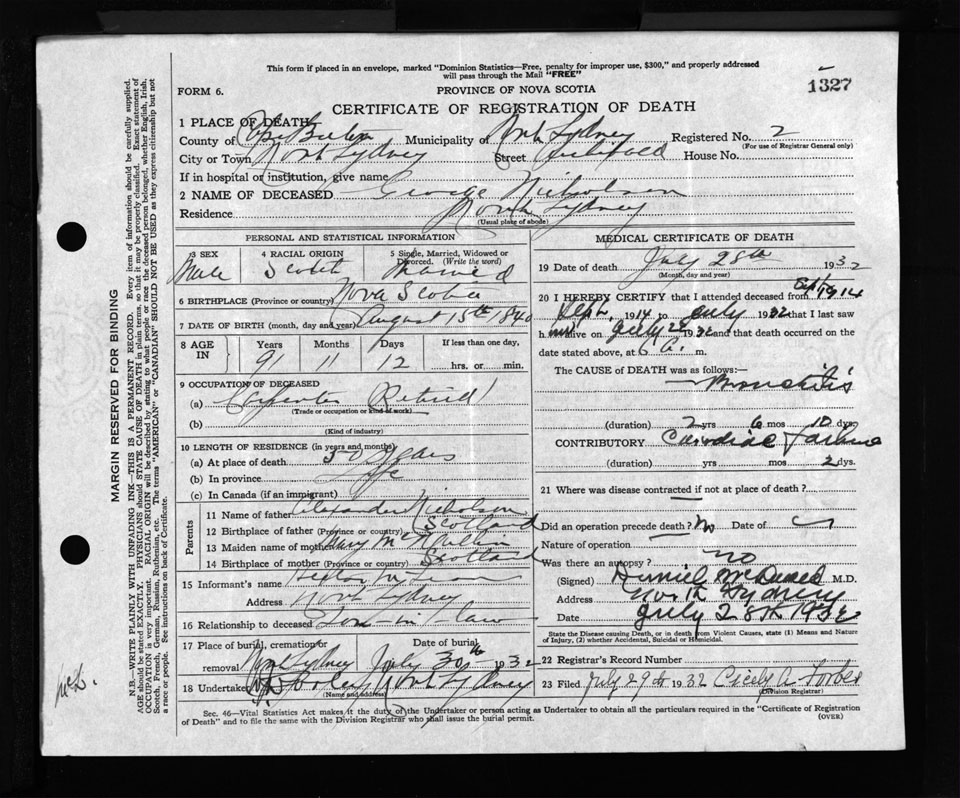 This form if placed in an envelope, marked "Dominion Statistics—Free, penalty for improper use, $300," and properly addressed
will pass through the Mail "FREE"
1327
FORM 6.
PROVINCE OF NOVA SCOTIA
CERTIFICATE OF REGISTRATION OF DEATH
1 PLACE OF DEATH
County of Cape Breton Municipality of North Sydney Registered No. 2
(For use of Registrar General only)
City or Town North Sydney Street Archibald House No.
If in hospital or institution, give name
2 NAME OF DECEASED George Nicholson
Residence North Sydney
(Usual place of abode)
PERSONAL AND STATISTICAL INFORMATION
3 SEX 4 RACIAL ORIGIN 5 Single, Married, Widowed or Divorced. (Write the word)
Male Scotch Married
6 BIRTHPLACE (Province or country) Nova Scotia
7 DATE OF BIRTH (month, day and year) August 15th 1840
8 AGE IN Years Months Days If less than one day,
91 11 12 hrs. or min.
9 OCCUPATION OF DECEASED
(a) Carpenter Retired
(Trade or occupation or kind of work)
(b)
(Kind of industry)
10 LENGTH OF RESIDENCE (in years and months)
(a) At place of death 50 years
(b) In province life
(c) In Canada (if an immigrant)
Parents
11 Name of father Alexander Nicholson
12 Birthplace of father (Province or country) Scotland
13 Maiden name of mother Mary McMillan
14 Birthplace of mother (Province or country) Scotland
15 Informant's name Hector McLean
Address North Sydney
16 Relationship to deceased Son-in-law
17 Place of burial, cremation or removal Date of burial
North Sydney July 30th 1932
18 Undertaker North Sydney
(Name and address)
MEDICAL CERTIFICATE OF DEATH
19 Date of death July 28th 1932
(Month, day and year)
20 I HEREBY CERTIFY that I attended deceased from Sept 1914
Sept. 1914 to July 1932 that I last saw
h im alive on July 28 1932 and that death occurred on
date stated above, at 6 a. m.
The CAUSE OF DEATH was as follows:—
Bronchitis
(duration) 2 yrs 6 mos 10 dys.
CONTRIBUTORY Cardiac Failure
(duration) yrs mos 2 dys.
21 Where was disease contracted if not at place of death?
Did an operation precede death? No Date of
Nature of operation
Was there an autopsy? no
(Signed) Daniel McDonald M.D.
Address North Sydney
Date July 28th 1932
State the Disease causing Death, or in death from Violent Causes, state (1) Means and Nature of Injury, (2) whether Accidental, Suicidal or Homicidal.
22 Registrar's Record Number
23 Filed July 29th 1932 Cicely A. Forbes
(Division Registrar)
Sec. 46—Vital Statistics Act makes it the duty of the Undertaker or person acting as Undertaker to obtain all the particulars required in the "Certificate of Registration
of Death" and to file the same with the Division Registrar who shall issue the burial permit.
(OVER)
MARGIN RESERVED FOR BINDING
N.B.—WRITE PLAINLY WITH UNFADING INK—THIS IS A PERMANENT RECORD. Every item of information should be carefully supplied.
AGE should be stated EXACTLY. PHYSICIANS should STATE CAUSE OF DEATH in plain terms, so that it may be properly classified. Exact statement of
OCCUPATION is very important. RACIAL ORIGIN will be described by stating to what people or race the deceased person belonged, whether English, Irish,
Scotch, French, German, Russian, Ruthenian, etc. The terms "AMERICAN" or "CANADIAN" SHOULD NOT BE USED as they express citizenship but not
a race or people. See instructions on back of Certificate.